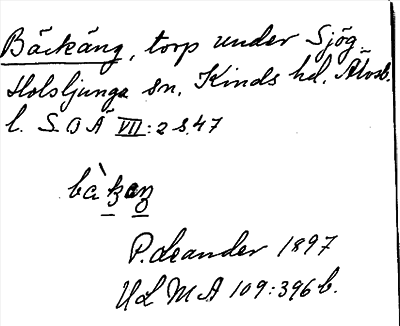 Bäckäng, torp under Sjög.
Holsljunga sn, Kinds hd, Älvsb.
l. S O Ä VII:2 s. 47
P. Leander 1897
ULMA 109:396 b.